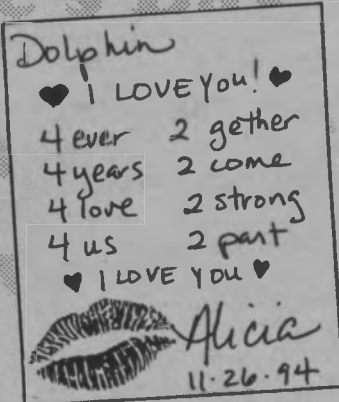 Dolphin
♥ I LOVE YOU! ♥
4 ever 2 gether
4 years 2 come
4 love 2 strong
4 us 2 part
♥ I LOVE YOU ♥
Alicia
11·26·94